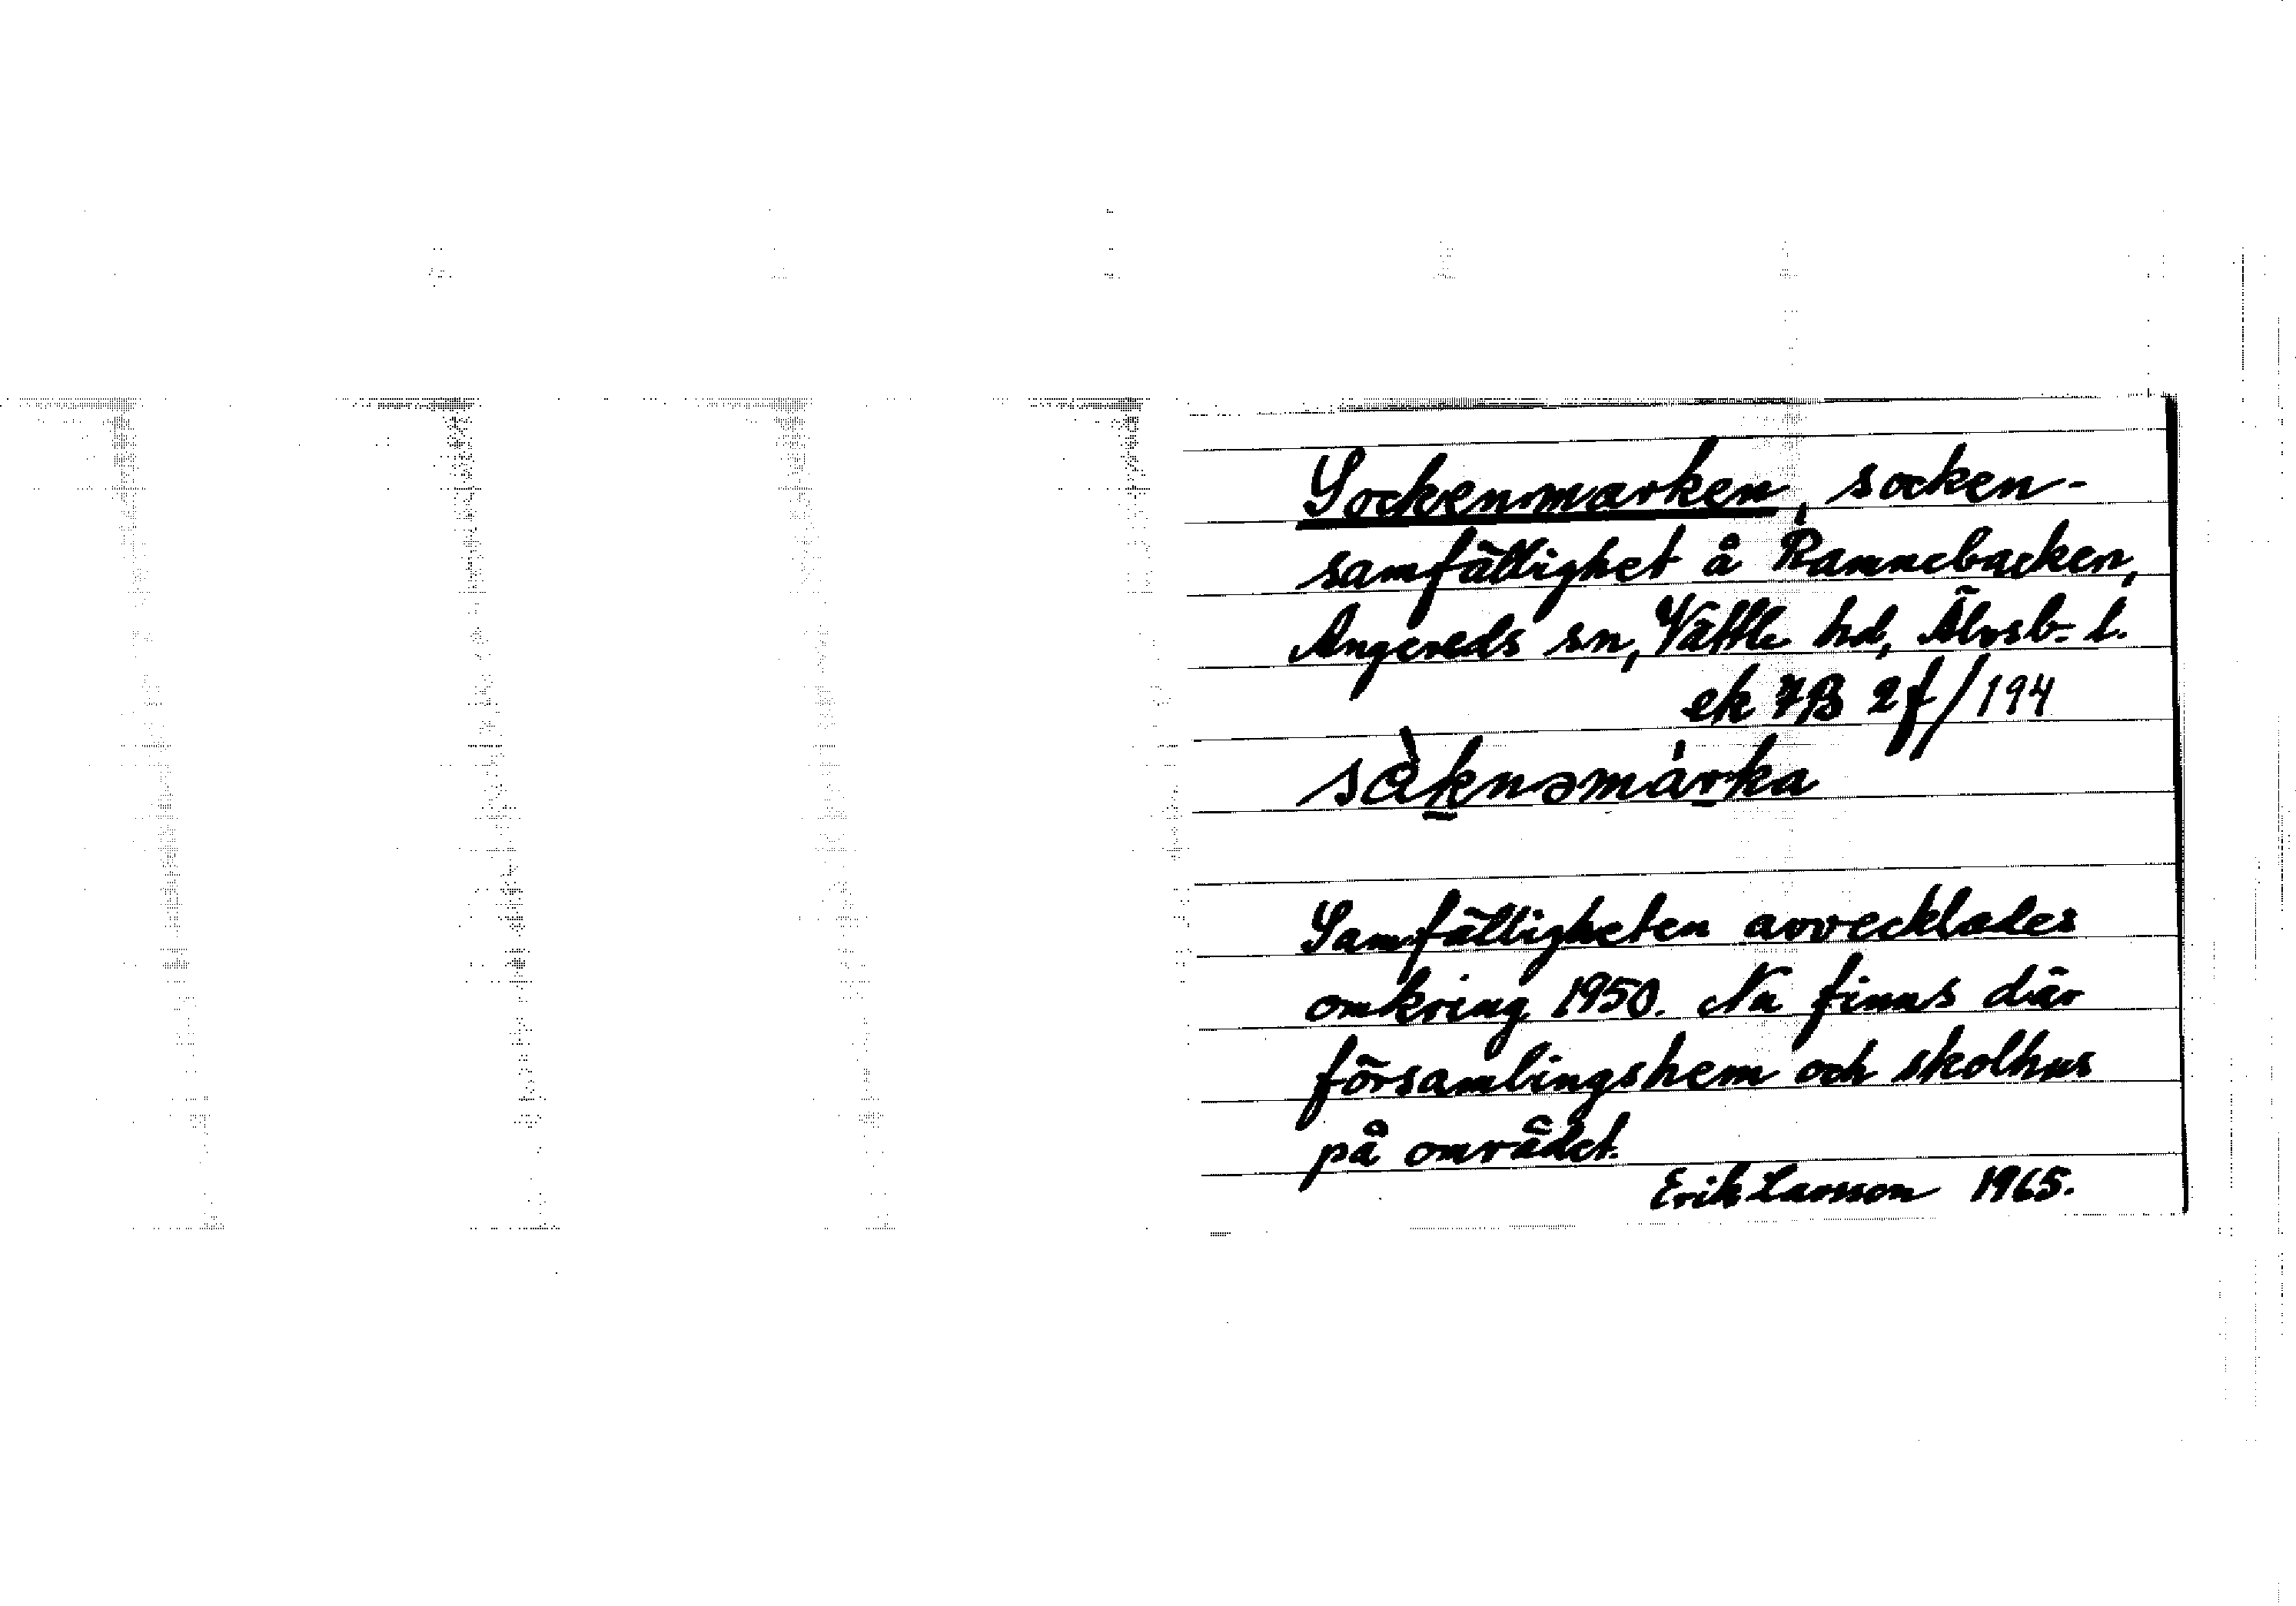 Sockenmarken, socken-
samfällighet å Rannebacken,
Angereds sn, Vättle hd, Älvsb. l.
ek 7B 2f/194
sàknəmárka
Samfälligheten avvecklades
omkring 1950. Nu finns där
församlingshem och skolhus
på området.
Erik Larsson 1965.